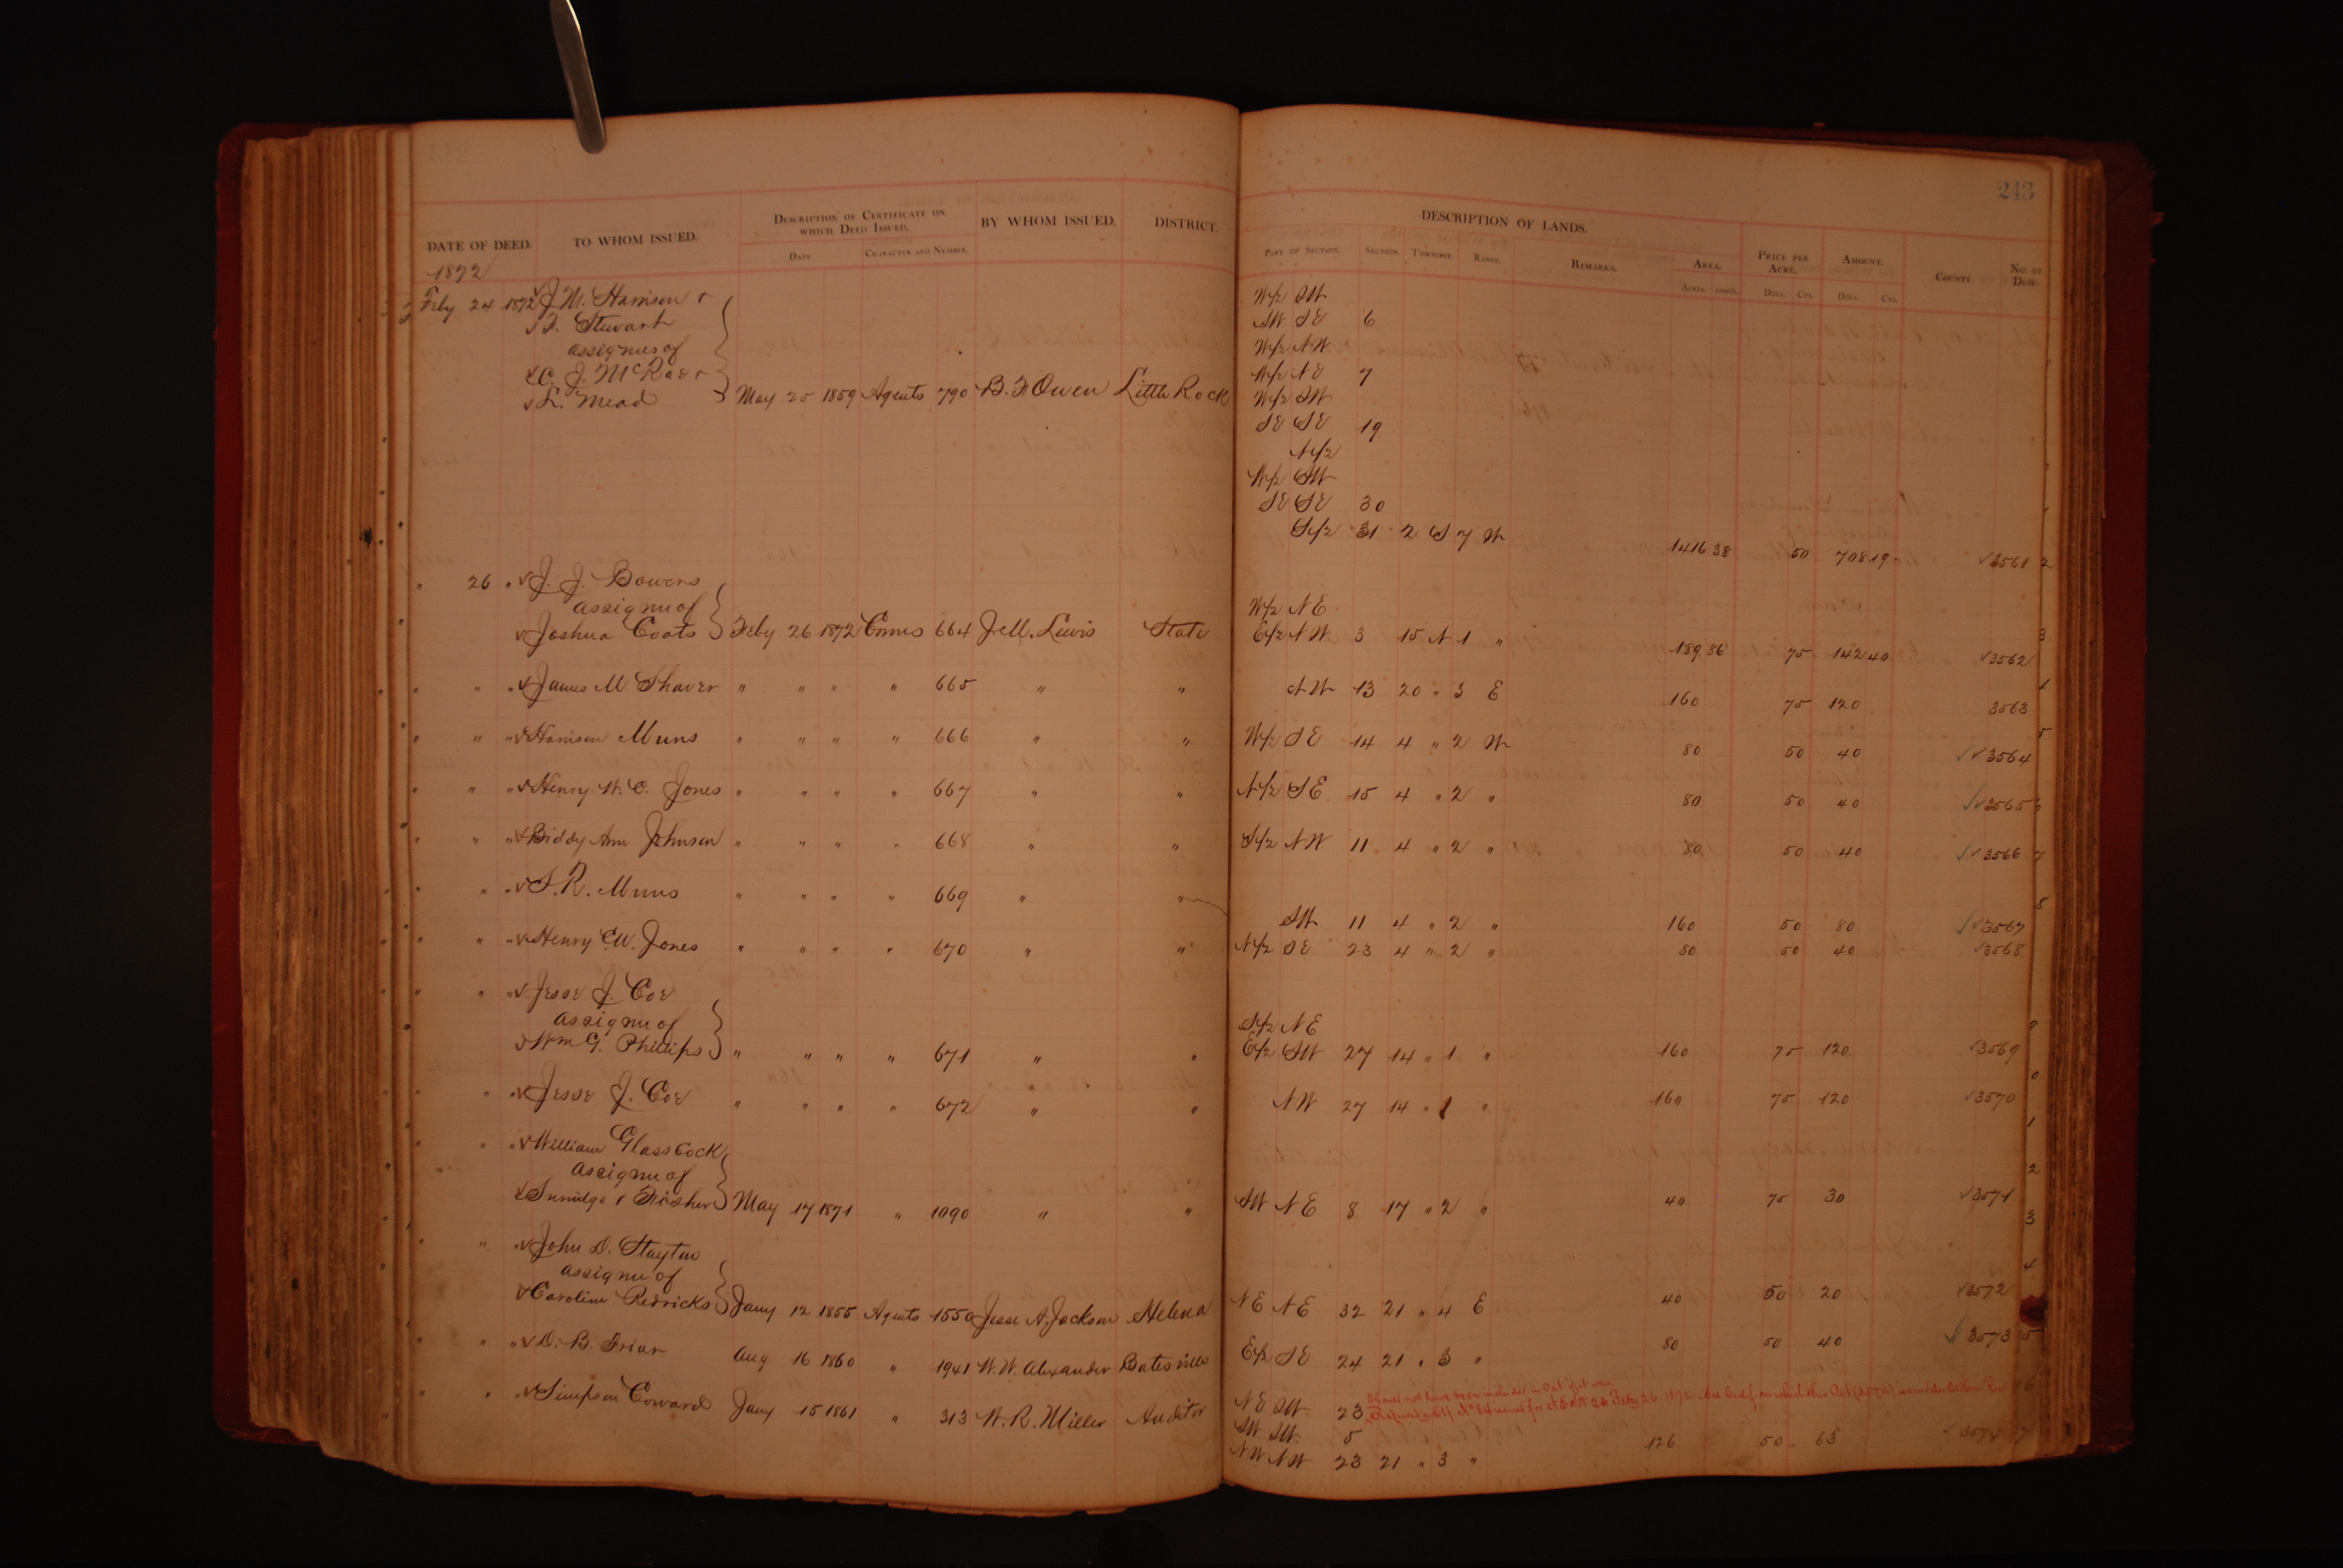 243
DATE OF DEED. TO WHOM ISSUED. DESCRIPTION OF CERTIFICATE ON WHICH DEED ISSUED. BY WHOM ISSUED. DISTRICT.
DATE CHARACTER AND NUMBER.
DESCRIPTION OF LANDS.
PART OF SECTION. SECTION. TOWNSHIP. RANGE. REMARKS. AREA. PRICE PER ACRE. AMOUNT. COUNTY NO. OF DEED.
ACRES. 100TH. DOLL. CTS. DOLL. CTS.
1872
Feby 24 1872 J. M. Harrison & W/2 SW
Stewart SW SE 6
assignees of W/2 NW
C. J. McRae & W/2 NE 7
L. Mead May 25 1859 Agents 790 B. F Owen Little Rock W/2 SW
SE SE 19
N/2
W/2 SW
SE SE 30
S/2 31 2 S 7 W 1416 38 50 708 19 3561
" 26 " J. J. Bowens
assignee of W/2 NE
Joshua Coats Feby 26 1872 Comrs 664 J. M. Lewis State E/2 NW 3 15 N 1 " 189 86 75 142 40 3562
" " " James M Shaver " " " " 665 " " NW 13 20 " 3 E 160 75 120 3563
" " " Harrison Muns " " " " 666 " " W/2 SE 14 4 " 2 W 80 50 40 3564
" " " Henry W. C. Jones " " " " 667 " " N/2 SE 15 4 " 2 " 80 50 40 3565
" " " Biddy Ann Johnson " " " " 668 " " S/2 NW 11 4 " 2 " 80 50 40 3566
" " " S. R. Muns " " " " 669 " " SW 11 4 " 2 " 160 50 80 3567
" " " Henry C W. Jones " " " " 670 " " N/2 SE 23 4 " 2 " 80 50 40 3568
" " " Jesse J. Coe
assignee of S/2 NE
Wm G. Phillips " " " " 671 " " E/2 SW 27 14 " 1 " 160 75 120 3569
" " " Jesse J. Coe " " " " 672 " " NW 27 14 " 1 " 160 75 120 3570
" " " William Glasscock
assignee of
& Fisher May 17 1871 " 1090 " " SW NE 8 17 " 2 " 40 75 30 3571
" " " John D. Stayton
assignee of
Caroline Redricks Jany 12 1855 Agents 1550 Jesse A. Jackson Helena NE NE 32 21 " 4 E 40 50 20 3572
" " " D. B. Friar Aug 16 1860 " 1941 W. W. Alexander Batesville E/2 SE 24 21 " 3 " 80 50 40 3573
" " " Simpson Coward Jany 15 1861 " 313 W. R. Miller Auditor NE SW 23
Should not have been included in
SW SW 5
NW NW 23 21 " 3 " 126 50 63 3574